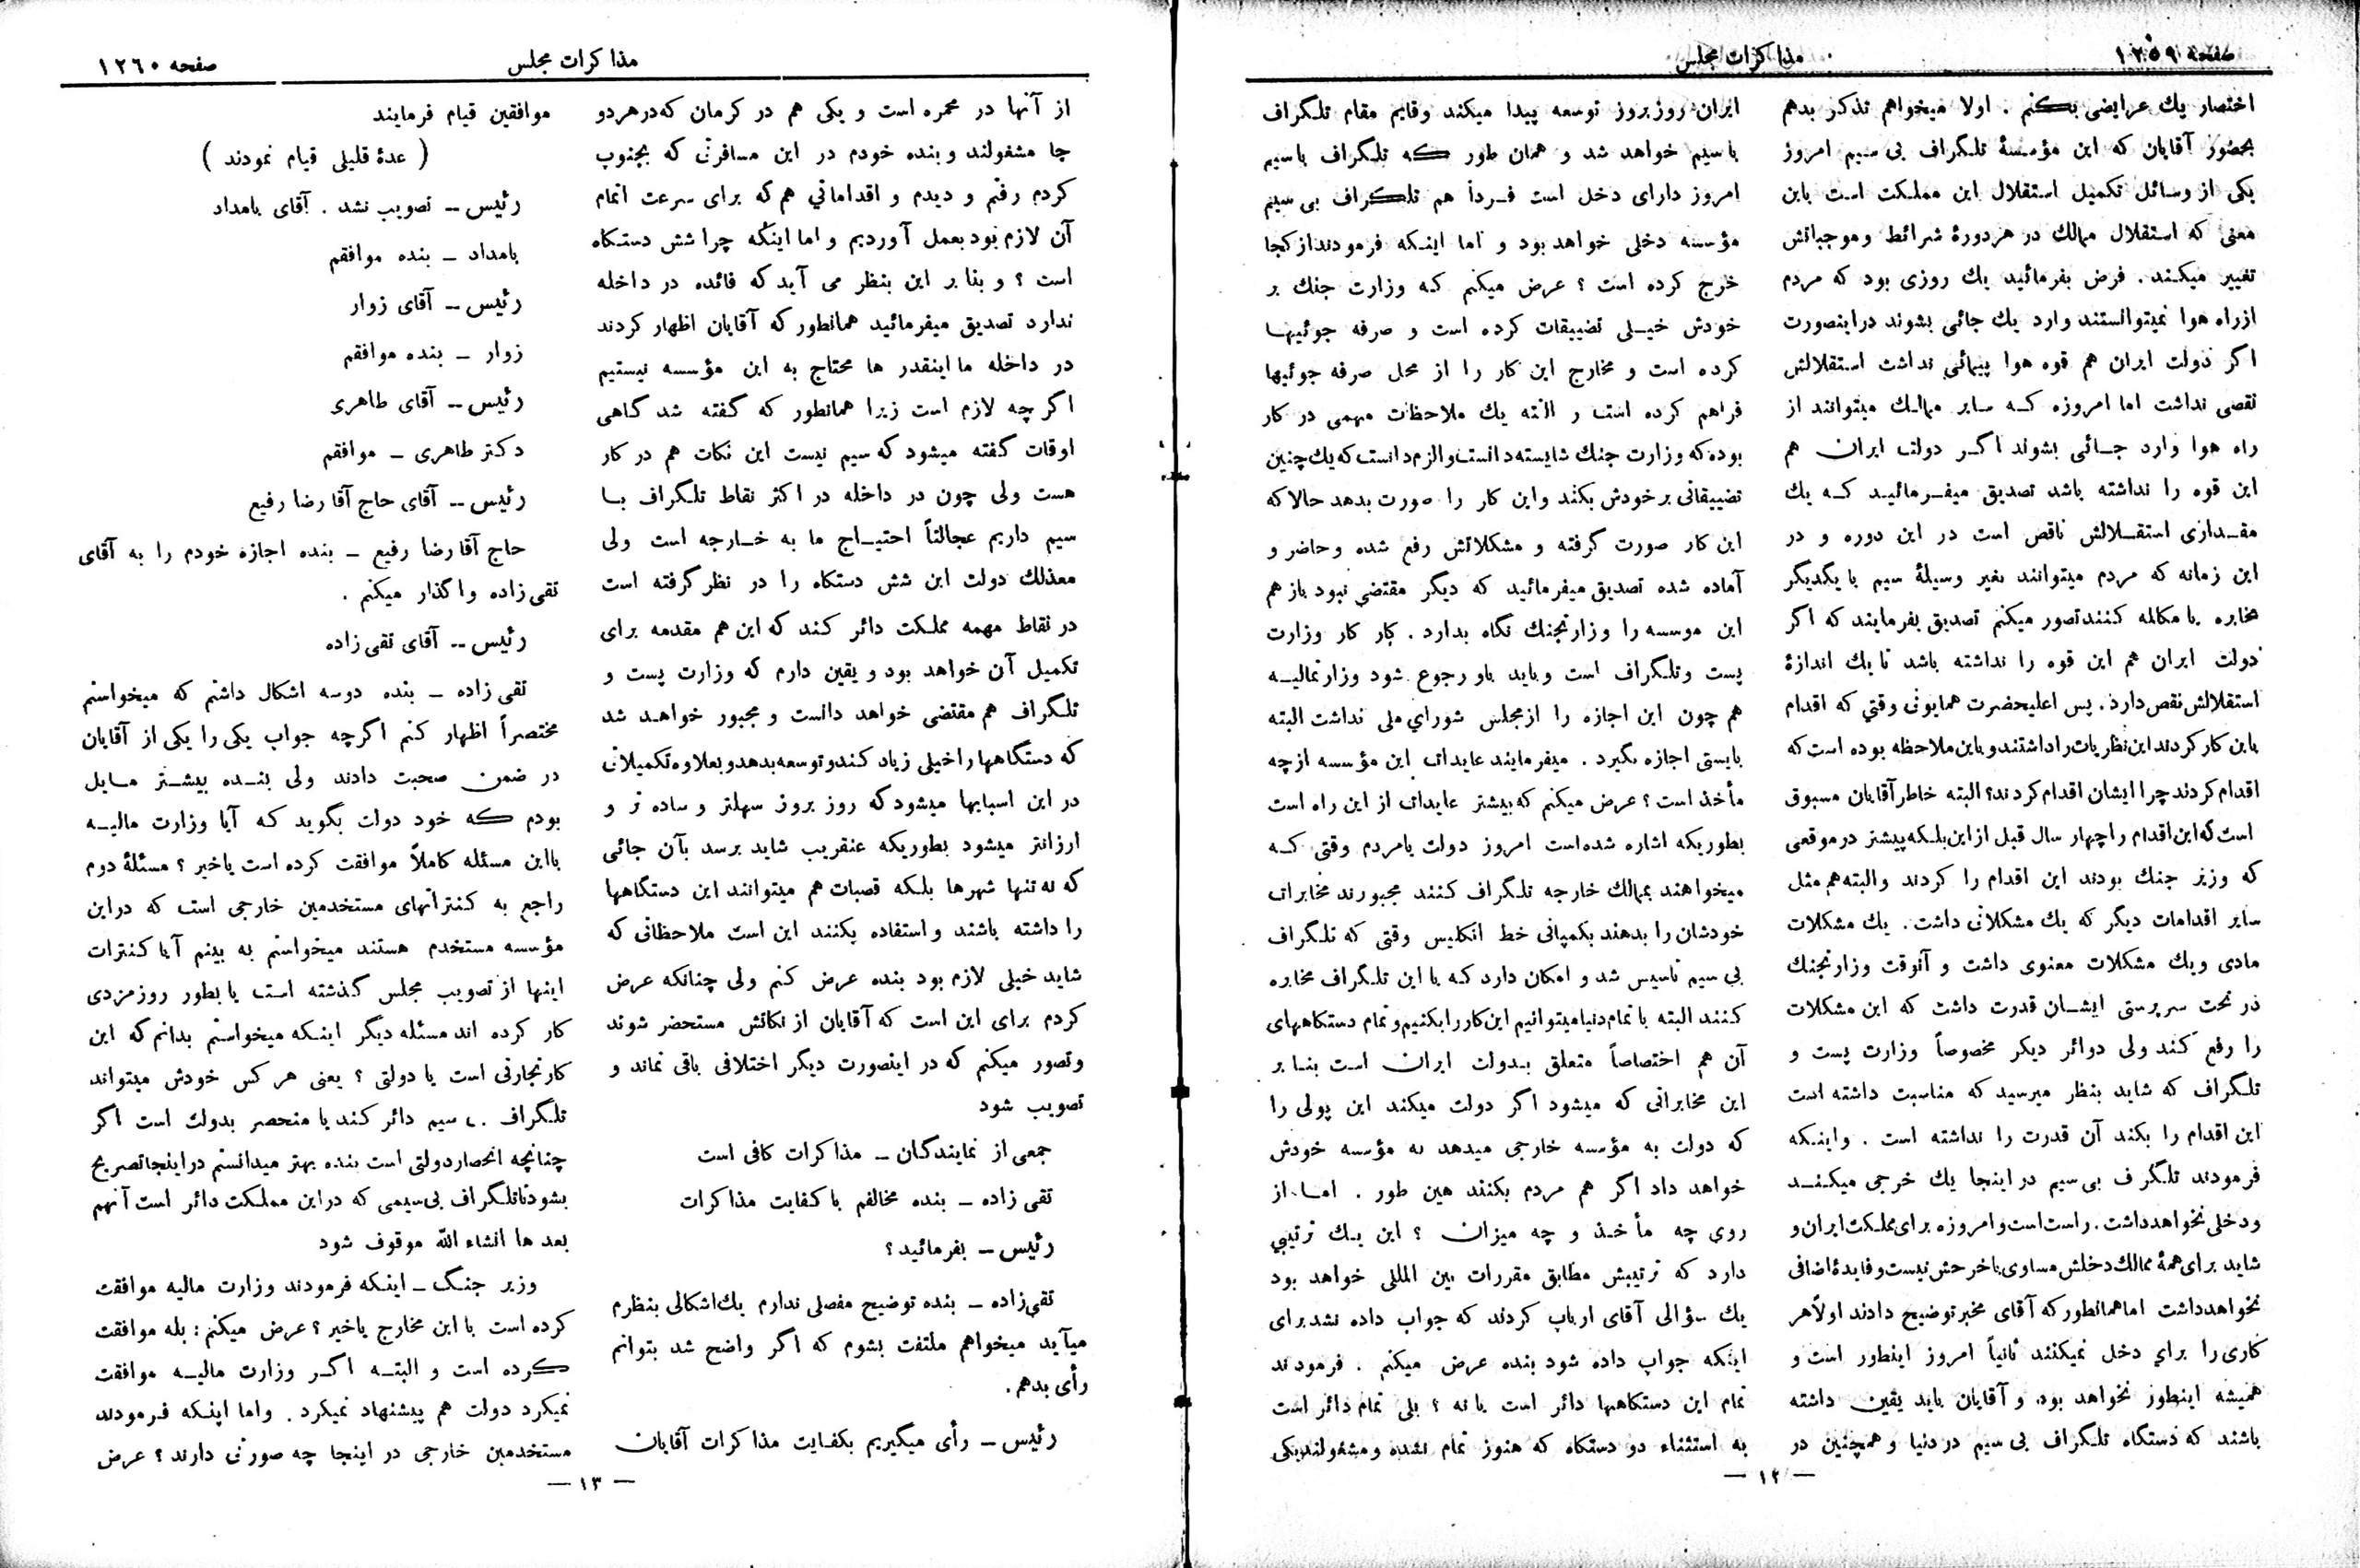 صفحه ١٢٥٩
مذاکرات مجلس
اختصار یك عرایضی بکنم . اولا میخواهم تذکر بدهم
بحضور آقایان که این مؤسسهٔ تلگراف بی سیم امروز
یکی از وسائل تکمیل استقلال این مملکت است باین
معنی که استقلال ممالك در هر دورهٔ شرائط و موجباتش
تغییر میکند . فرض بفرمائید یك روزی بود که مردم
از راه هوا نمیتوانستند وارد یك جائی بشوند در اینصورت
اگر دولت ایران هم قوه هوا پیمائی نداشت استقلالش
نقصی نداشت اما امروزه که سایر ممالك میتوانند از
راه هوا وارد جائی بشوند اگر دولت ایران هم
این قوه را نداشته باشد تصدیق میفرمائید که یك
مقداری استقلالش ناقص است در این دوره و در
این زمانه که مردم میتوانند بغیر وسیلهٔ سیم با یکدیگر
مخابره یا مکالمه کنند تصور میکنم تصدیق بفرمایند که اگر
دولت ایران هم این قوه را نداشته باشد تا یك اندازهٔ
استقلالش نقص دارد . پس اعلیحضرت همایونی وقتی که اقدام
باین کار کردند این نظریات را داشتند و باین ملاحظه بوده است که
اقدام کردند چرا ایشان اقدام کردند؟ البته خاطر آقایان مسبوق
است که این اقدام را چهار سال قبل از این بلکه پیشتر در موقعی
که وزیر جنك بودند این اقدام را کردند و البته هم مثل
سایر اقدامات دیگر که یك مشکلاتی داشت . یك مشکلات
مادی و یك مشکلات معنوی داشت و آنوقت وزارتجنك
در تحت سرپرستی ایشان قدرت داشت که این مشکلات
را رفع کند ولی دوائر دیگر مخصوصاً وزارت پست و
تلگراف که شاید بنظر میرسید که مناسبت داشته است
این اقدام را بکند آن قدرت را نداشته است . و اینکه
فرمودند تلگراف بی سیم در اینجا یك خرجی میکند
و دخلی نخواهد داشت . راست است و امروزه برای مملکت ایران و
شاید برای همهٔ ممالك دخلش مساوی با خرجش نیست و فایدهٔ اضافی
نخواهد داشت اما همانطور که آقای مخبر توضیح دادند اولاً هر
کاری را برای دخل نمیکنند ثانیاً امروز اینطور است و
همیشه اینطور نخواهد بود و آقایان باید یقین داشته
باشند که دستگاه تلگراف بی سیم در دنیا و همچنین در
ایران روز بروز توسعه پیدا میکند و قایم مقام تلگراف
با سیم خواهد شد و همان طور که تلگراف با سیم
امروز دارای دخل است فردا هم تلگراف بی سیم
مؤسسه دخلی خواهد بود و اما اینکه فرمودند از کجا
خرج کرده است ؟ عرض میکنم که وزارت جنك بر
خودش خیلی تضییقات کرده است و صرفه جوئیها
کرده است و مخارج این کار را از محل صرفه جوئیها
فراهم کرده است و البته یك ملاحظات مهمی در کار
بوده که وزارت جنك شایسته دانست و الزم دانست که یك چنین
تضییقاتی بر خودش بکند و این کار را صورت بدهد حالا که
این کار صورت گرفته و مشکلاتش رفع شده و حاضر و
آماده شده تصدیق میفرمائید که دیگر مقتضی نبود باز هم
این موسسه را وزارتجنك نگاه بدارد . کار کار وزارت
پست و تلگراف است و باید باو رجوع شود وزارتمالیه
هم چون این اجازه را از مجلس شورای ملی نداشت البته
بایستی اجازه بگیرد . میفرمایند عایدات این مؤسسه از چه
مأخذ است ؟ عرض میکنم که بیشتر عایدات از این راه است
بطوریکه اشاره شده است امروز دولت یا مردم وقتی که
میخواهند بممالك خارجه تلگراف کنند مجبورند مخابرات
خودشان را بدهند بکمپانی خط انگلیس وقتی که تلگراف
بی سیم تاسیس شد و امکان دارد که با این تلگراف مخابره
کنند البته با تمام دنیا میتوانیم این کار را بکنیم و تمام دستگاههای
آن هم اختصاصاً متعلق بدولت ایران است بنا بر
این مخابراتی که میشود اگر دولت میکند این پولی را
که دولت به مؤسسه خارجی میدهد به مؤسسه خودش
خواهد داد اگر هم مردم بکنند همین طور . اما از
روی چه مأخذ و چه میزان ؟ این یك ترتیبی
دارد که ترتیبش مطابق مقررات بین المللی خواهد بود
یك سؤالی آقای ارباب کردند که جواب داده نشد برای
اینکه جواب داده شود بنده عرض میکنم . فرمودند
تمام این دستگاهها دائر است یا نه ؟ بلی تمام دائر است
به استثناء دو دستگاه که هنوز تمام نشده و مشغولند یکی
— ١٢ —
مذاکرات مجلس
صفحه ١٢٦٠
از آنها در محمره است و یکی هم در کرمان که در هر دو
جا مشغولند و بنده خودم در این مسافرتی که بجنوب
کردم رفتم و دیدم و اقداماتی هم که برای سرعت اتمام
آن لازم بود بعمل آوردیم و اما اینکه چرا شش دستگاه
است ؟ و بنا بر این بنظر می آید که فائده در داخله
ندارد تصدیق میفرمائید همانطور که آقایان اظهار کردند
در داخله ما اینقدر ها محتاج به این مؤسسه نیستیم
اگر چه لازم است زیرا همانطور که گفته شد گاهی
اوقات گفته میشود که سیم نیست این نکات هم در کار
هست ولی چون در داخله در اکثر نقاط تلگراف با
سیم داریم عجالتاً احتیاج ما به خارجه است ولی
معذلك دولت این شش دستگاه را در نظر گرفته است
در نقاط مهمه مملکت دائر کند که این هم مقدمه برای
تکمیل آن خواهد بود و یقین دارم که وزارت پست و
تلگراف هم مقتضی خواهد دانست و مجبور خواهد شد
که دستگاهها را خیلی زیاد کند و توسعه بدهد و بعلاوه تکمیلاتی
در این اسبابها میشود که روز بروز سهلتر و ساده تر و
ارزانتر میشود بطوریکه عنقریب شاید برسد بآن جائی
که نه تنها شهرها بلکه قصبات هم میتوانند این دستگاهها
را داشته باشند و استفاده بکنند این است ملاحظاتی که
شاید خیلی لازم بود بنده عرض کنم ولی چنانکه عرض
کردم برای این است که آقایان از نکاتش مستحضر شوند
و تصور میکنم که در اینصورت دیگر اختلافی باقی نماند و
تصویب شود
جمعی از نمایندگان ــ مذاکرات کافی است
تقی زاده ــ بنده مخالفم با کفایت مذاکرات
رئیس ــ بفرمائید ؟
تقی زاده ــ بنده توضیح مفصلی ندارم یك اشکالی بنظرم
میآید میخواهم ملتفت بشوم که اگر واضح شد بتوانم
رأی بدهم .
رئیس ــ رأی میگیریم بکفایت مذاکرات آقایان
موافقین قیام فرمایند
( عدهٔ قلیلی قیام نمودند )
رئیس ــ تصویب نشد . آقای بامداد
بامداد ــ بنده موافقم
رئیس ــ آقای زوار
زوار ــ بنده موافقم
رئیس ــ آقای طاهری
دکتر طاهری ــ موافقم
رئیس ــ آقای حاج آقا رضا رفیع
حاج آقا رضا رفیع ــ بنده اجازه خودم را به آقای
تقی زاده واگذار میکنم .
رئیس ــ آقای تقی زاده
تقی زاده ــ بنده دو سه اشکال داشتم که میخواستم
مختصراً اظهار کنم اگرچه جواب یکی را یکی از آقایان
در ضمن صحبت دادند ولی بنده بیشتر مایل
بودم که خود دولت بگوید که آیا وزارت مالیه
با این مسئله کاملاً موافقت کرده است یا خیر ؟ مسئلهٔ دوم
راجع به کنتراتهای مستخدمین خارجی است که در این
مؤسسه مستخدم هستند میخواستم به بینم آیا کنترات
اینها از تصویب مجلس گذشته است یا بطور روزمزدی
کار کرده اند مسئله دیگر اینکه میخواستم بدانم که این
کار تجارتی است یا دولتی ؟ یعنی هر کس خودش میتواند
تلگراف بی سیم دائر کند یا منحصر بدولت است اگر
چنانچه انحصار دولتی است بنده بهتر میدانستم در اینجا تصریح
بشود تا تلگراف بی سیمی که در این مملکت دائر است آنهم
بعد ها انشاء الله موقوف شود
وزیر جنگ ــ اینکه فرمودند وزارت مالیه موافقت
کرده است با این مخارج یا خیر ؟ عرض میکنم : بله موافقت
کرده است و البته اگر وزارت مالیه موافقت
نمیکرد دولت هم پیشنهاد نمیکرد . و اما اینکه فرمودند
مستخدمین خارجی در اینجا چه صورتی دارند ؟ عرض
— ١٣ —